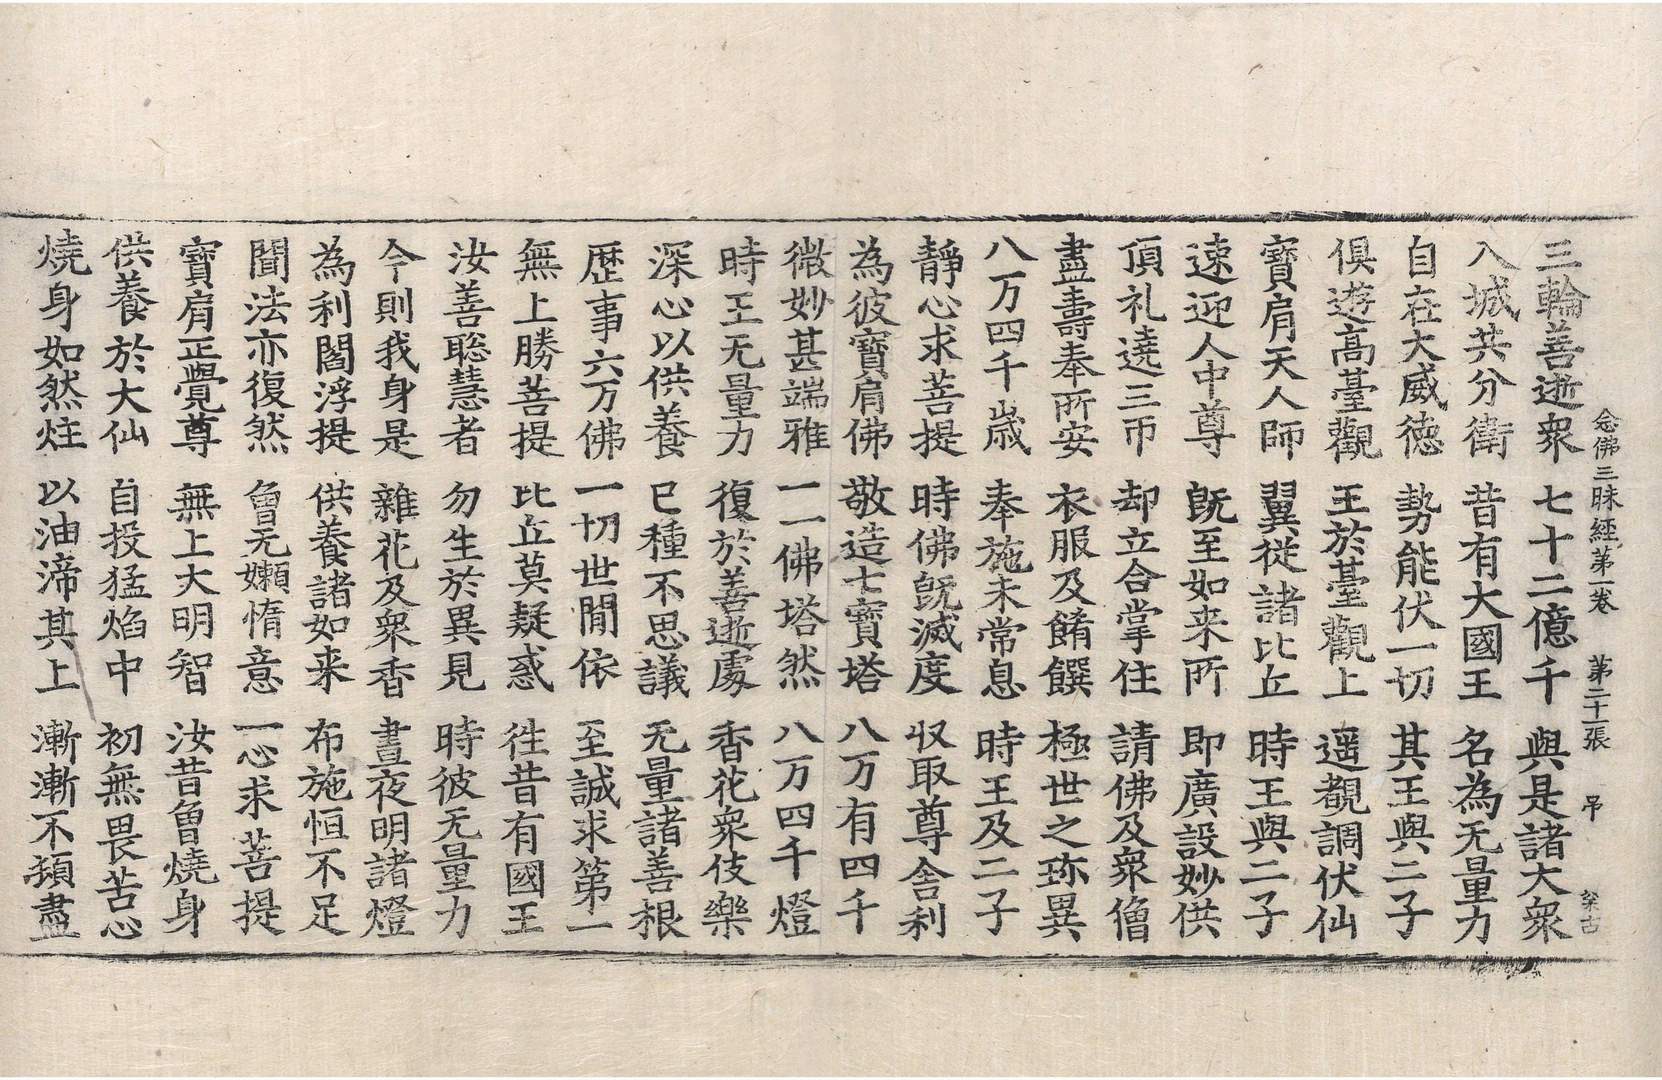 念佛三昧經第一卷 第二十張 弔
三輪善逝衆 七十二億千 與是諸大衆
入城共分衛 昔有大國王 名為无量力
自在大威德 勢能伏一切 其王與二子
俱遊高臺觀 王於臺觀上 遥覩調伏仙
寶肩天人師 翼從諸比丘 時王與二子
速迎人中尊 旣至如来所 即廣設妙供
頂礼遶三帀 却立合掌住 請佛及衆僧
盡壽奉所安 衣服及餚饌 極世之珎異
八万四千歳 奉施未常息 時王及二子
靜心求菩提 時佛旣滅度 収取尊舎利
為彼寶肩佛 敬造七寶塔 八万有四千
微妙甚端雅 一一佛塔然 八万四千燈
時王无量力 復於善逝處 香花衆伎樂
深心以供養 已種不思議 无量諸善根
歷事六万佛 一切世間依 至誠求第一
無上勝菩提 比丘莫疑惑 徃昔有國王
汝善聡慧者 勿生於異見 時彼无量力
今則我身是 雜花及衆香 晝夜明諸燈
為利閻浮提 供養諸如来 布施恒不足
聞法亦復然 曾无嬾惰意 一心求菩提
寶肩正覺尊 無上大明智 汝昔曾燒身
供養於大仙 自投猛焰中 初無畏苦心
燒身如然炷 以油渧其上 漸漸不頓盡